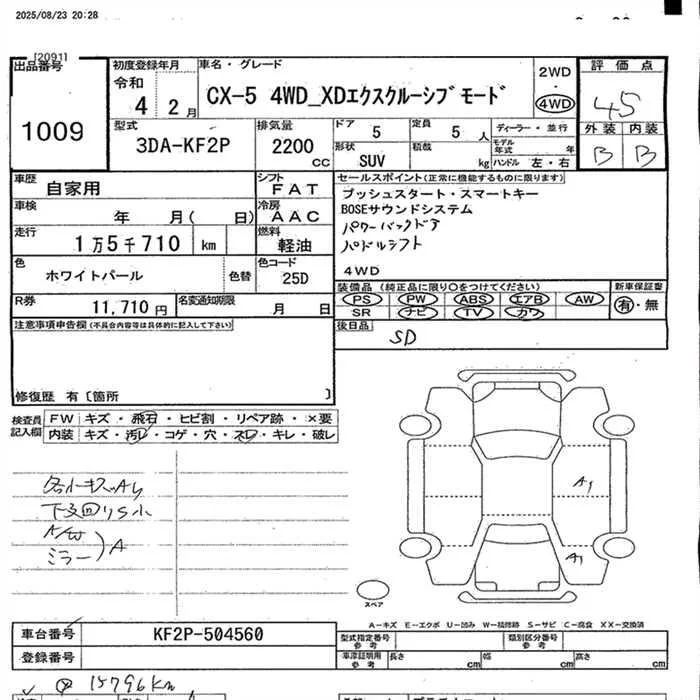 2025/08/23 20:28
[2091]
出品番号
1009
初度登録年月
令和
4 2月
車名・グレード
CX-5 4WD_XDエクスクルーシブモード
2WD
・
4WD
評価点
4.5
外装 内装
B B
型式
3DA-KF2P
排気量
2200
cc
ドア 5
定員 5 人
形状 SUV
積載 kg
ディーラー・並行
モデル年式 年
ハンドル 左・右
車歴
自家用
シフト
FAT
車検
年 月( 日)
冷房
AAC
走行
1万5千710 km
燃料
軽油
色
ホワイトパール
色替
色コード
25D
R券
11,710 円
名変通知期限
月 日
セールスポイント(正常に機能するものに限ります)
プッシュスタート・スマートキー
BOSEサウンドシステム
パワーバックドア
パドルシフト
4WD
装備品(純正品に限り○をつけてください)
PS PW ABS エアB AW
SR ナビ TV カワ
新車保証書
有・無
後日品
SD
注意事項申告欄(不具合内容等は具体的に記入して下さい)
修復歴 有〔箇所 〕
検査員記入欄
FW キズ・飛石・ヒビ割・リペア跡・×要
内装 キズ・汚レ・コゲ・穴・スレ・キレ・破レ
A/W
ミラー)A
A1
A1
スペア
A-キズ E-エクボ U-凹み W-補修跡 S-サビ C-腐食 XX-交換済
車台番号
KF2P-504560
登録番号
型式指定番号参考
類別区分番号参考
車庫証明用参考
長さ cm
幅 cm
高さ cm
15796km